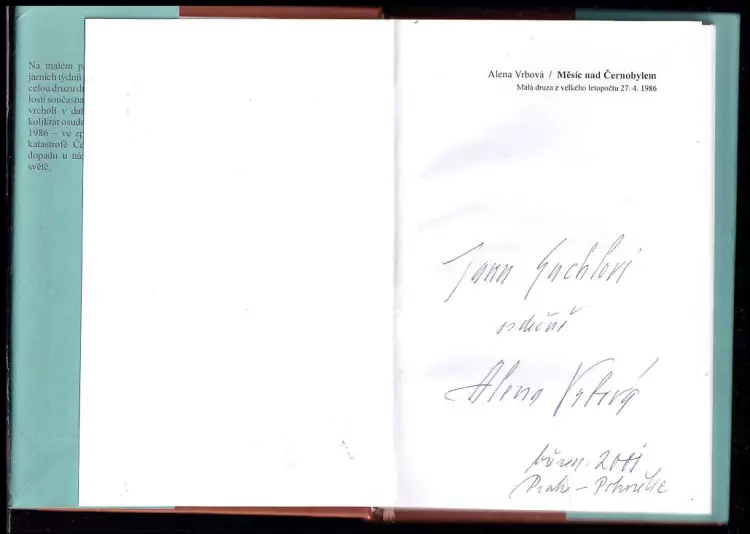 Na malém
jarních týdnů
celou druzu
losti současna
vrcholí v dat
kolikrát osudo
1986 – ve zp
katastrofě Če
dopadu u nás
světě.
Alena Vrbová / Měsíc nad Černobylem
Malá druza z velkého letopočtu 27. 4. 1986
srdečně
Alena Vrbová
2001
Praha – Pohořelec